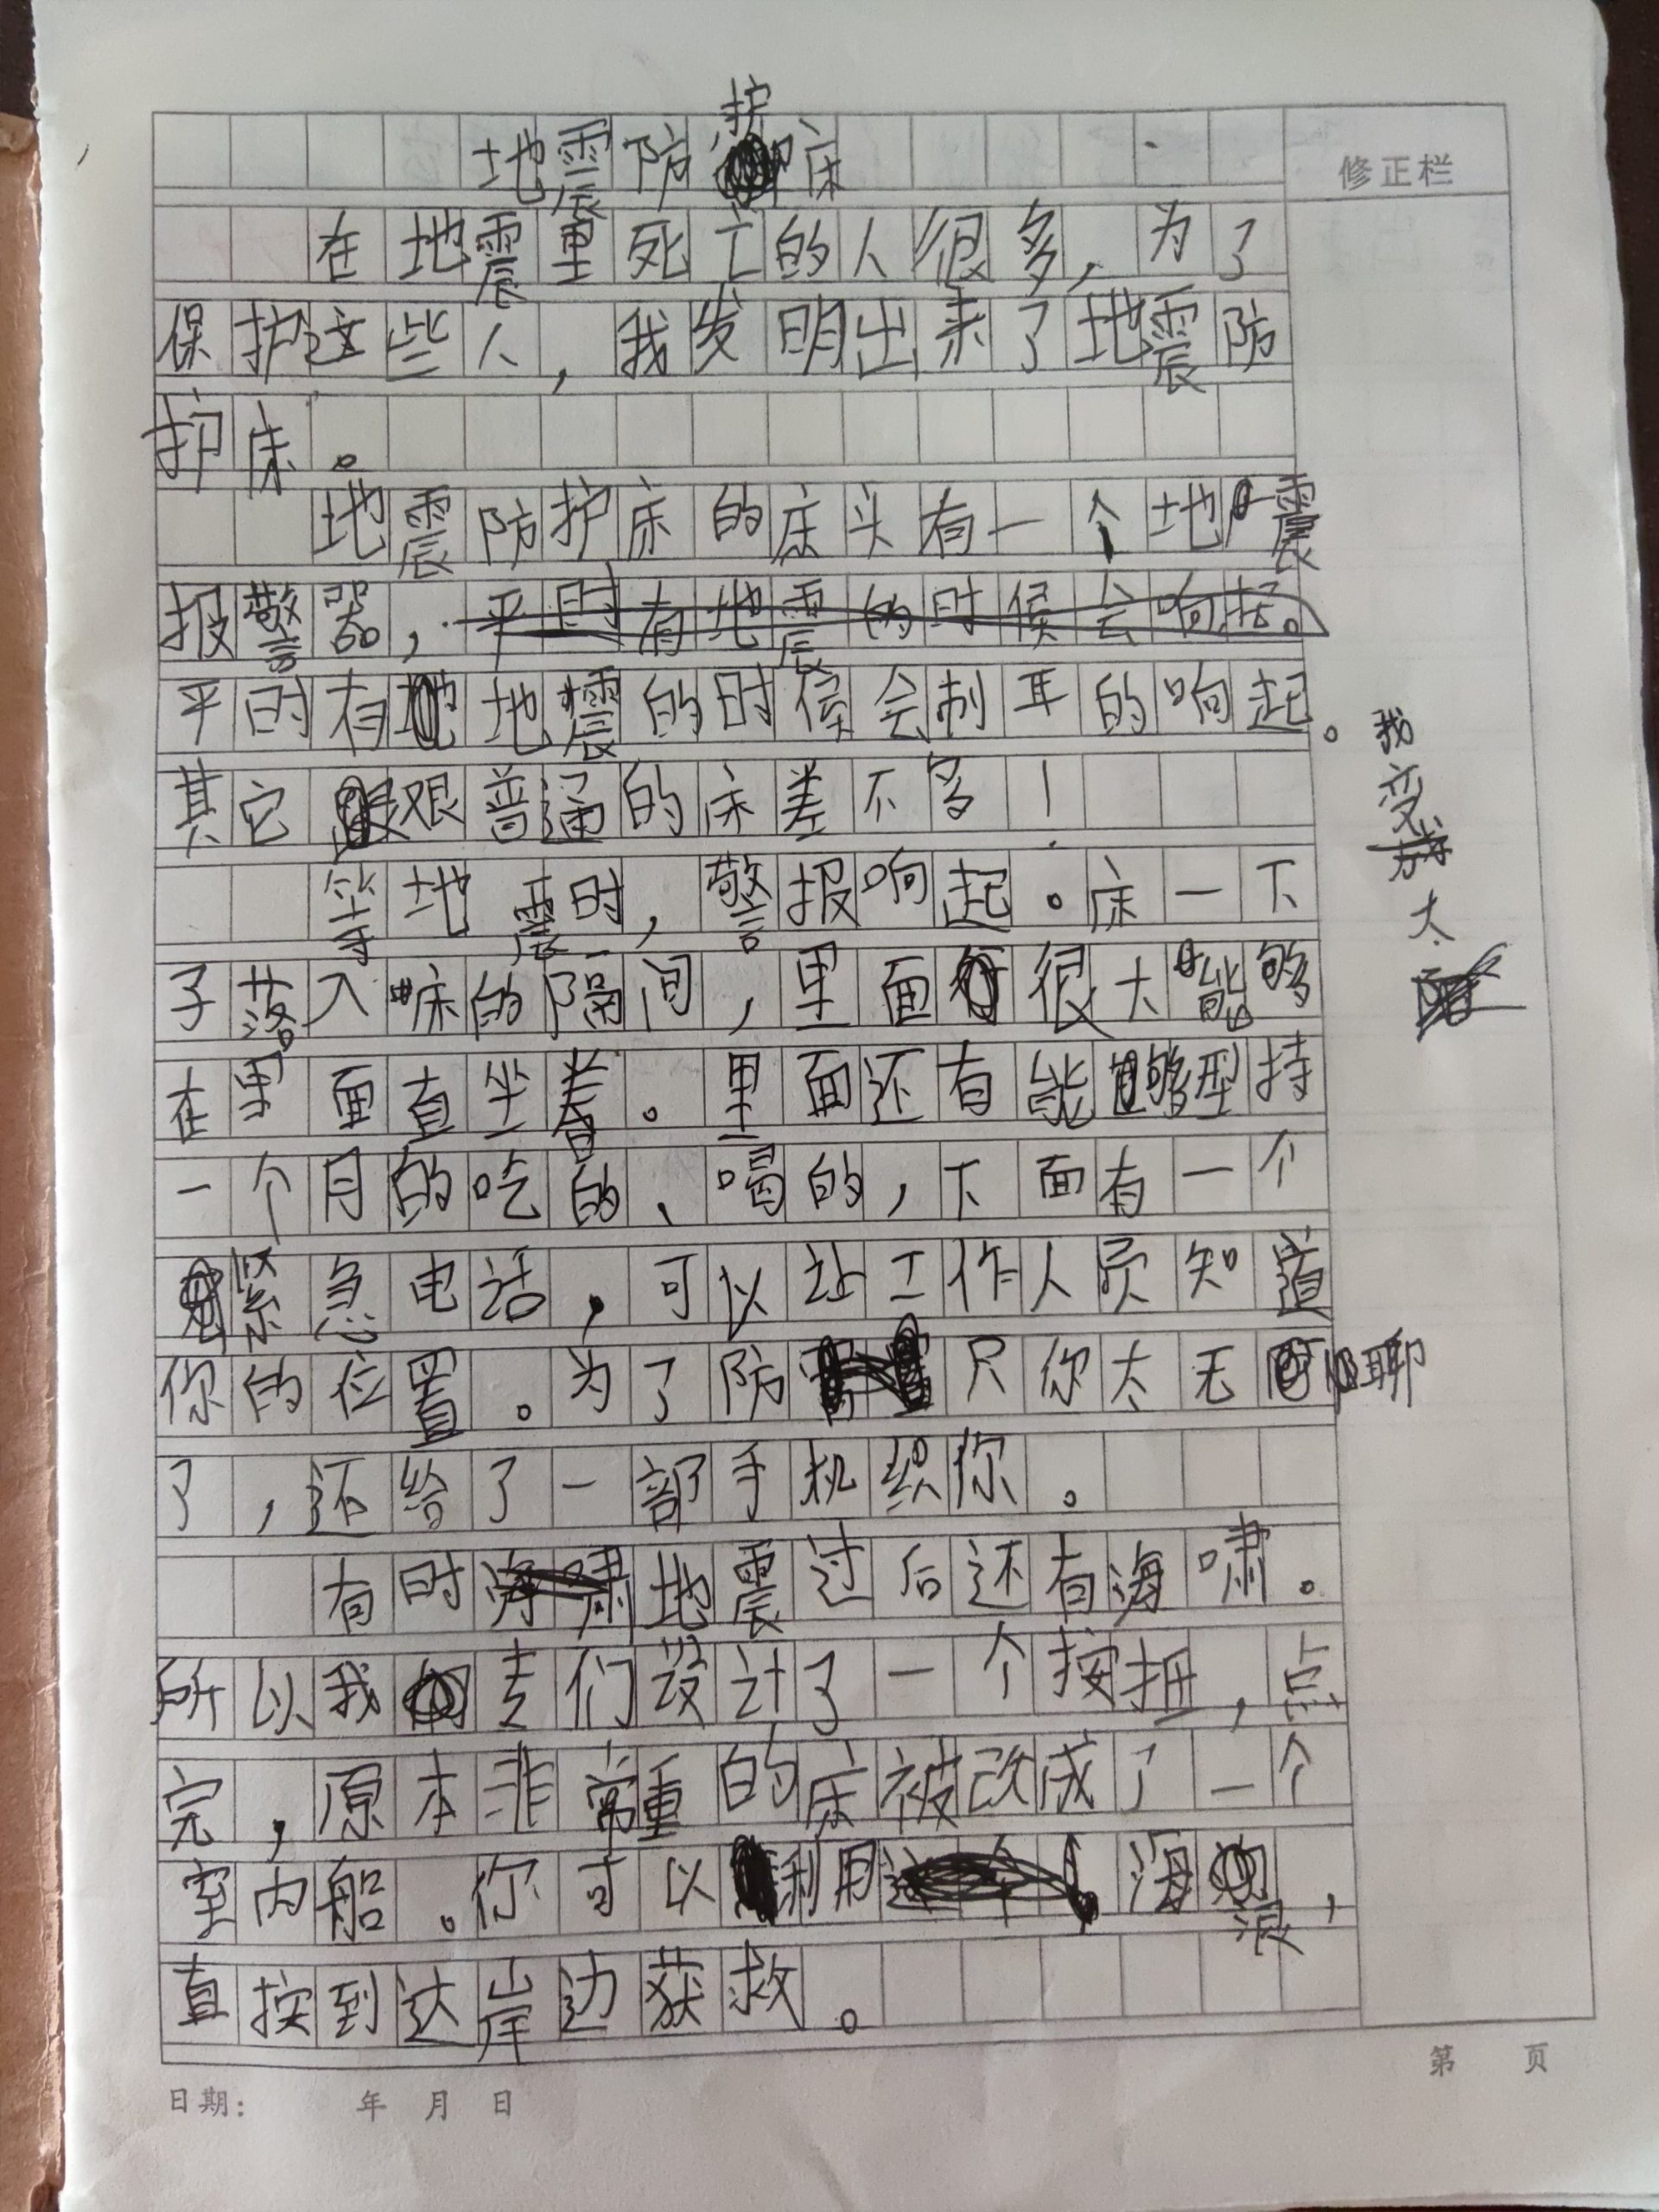 地震防护床
修正栏
在地震里死亡的人很多，为了
保护这些人，我发明出来了地震防
护床。
地震防护床的床头有一个地震
报警器，平时有地震的时候会响起。
平时有地震的时候会刺耳的响起。
其它跟普通的床差不多！
等地震时，警报响起。床一下
子落入床的隔间，里面很大能够
在里面直坐着。里面还有能够坚持
一个月的吃的、喝的，下面有一个
紧急电话，可以让工作人员知道
你的位置。为了防只你太无聊
了，还给了一部手机给你。
有时海啸地震过后还有海啸。
所以我专们设计了一个按扭，点
完，原本非常重的床被改成了一个
室内船。你可以利用海浪，
直接到达岸边获救。
我
变
太
日期： 年 月 日
第 页